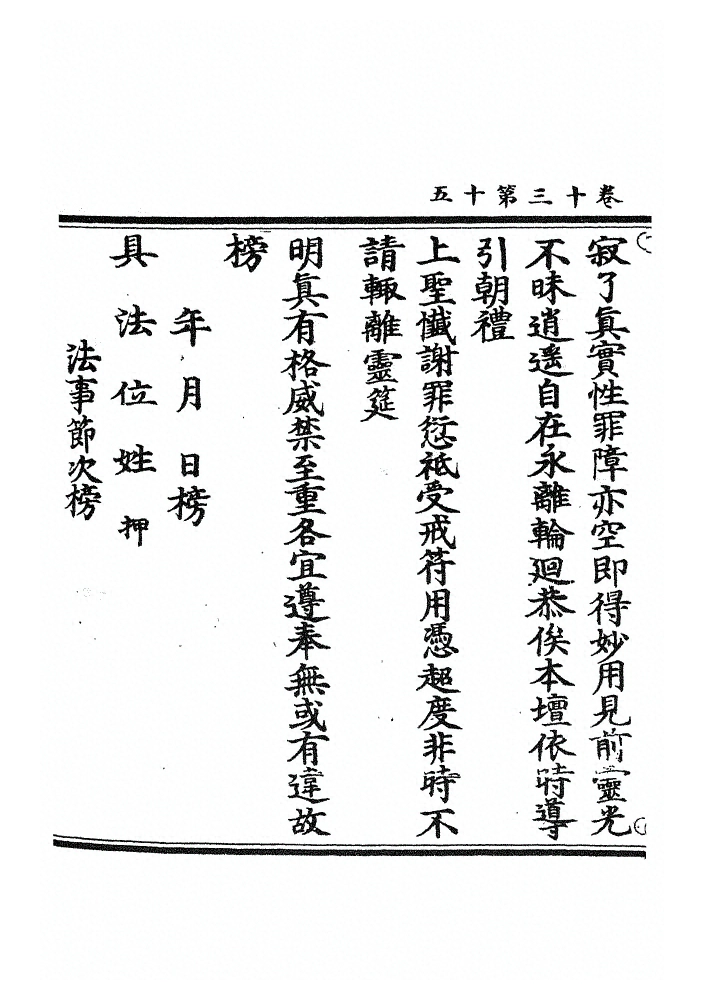 卷十三第十五
寂了眞實性罪障亦空即得妙用見前靈光
不昧逍遥自在永離輪迴恭俟本壇依時導
引朝禮
上聖懺謝罪愆祗受戒符用憑超度非時不
請輙離靈筵
明眞有格威禁至重各宜遵奉無或有違故
榜
年月日榜
具法位姓押
法事節次榜